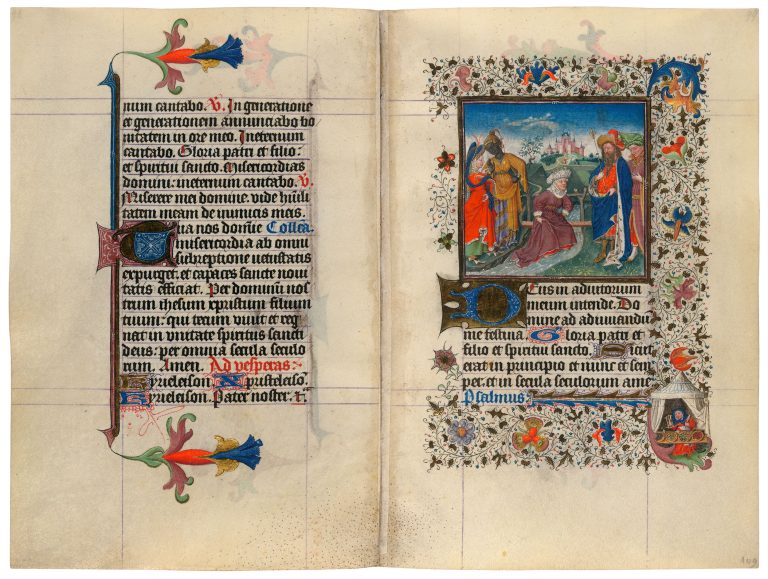 num cantabo. V. In generatione
et generationem annunciabo ve
ritatem in ore meo. Ineternum
cantabo. Gloria patri et filio:
et spiritui sancto. Misericordias
domini: ineternum cantabo. V.
Miserere mei domine. vide hūili
tatem meam de inimicis meis.
Tua nos domīe Collcā.
misericordia ab omni
subreptione vetustatis
expurget. et capaces sancte noui
tatis efficiat. Per dominū nos
trum ihesum xpristum filium
tuum: qui tecum viuit et reg
nat in vnitate spiritus sancti
deus: per omnia secula seculo
rum. Amen. Ad vesperas
Kyrieleison. Xpisteleiso.
Kyrieleison. Pater noster.
Deus in adiutorium
meum intende. Do
mine ad adiuuandū
me festina. Gloria patri et
filio et spiritui sancto. Sicut
erat in principio et nunc et sem
per. et in secula seculorum amē
Psalmus.
109